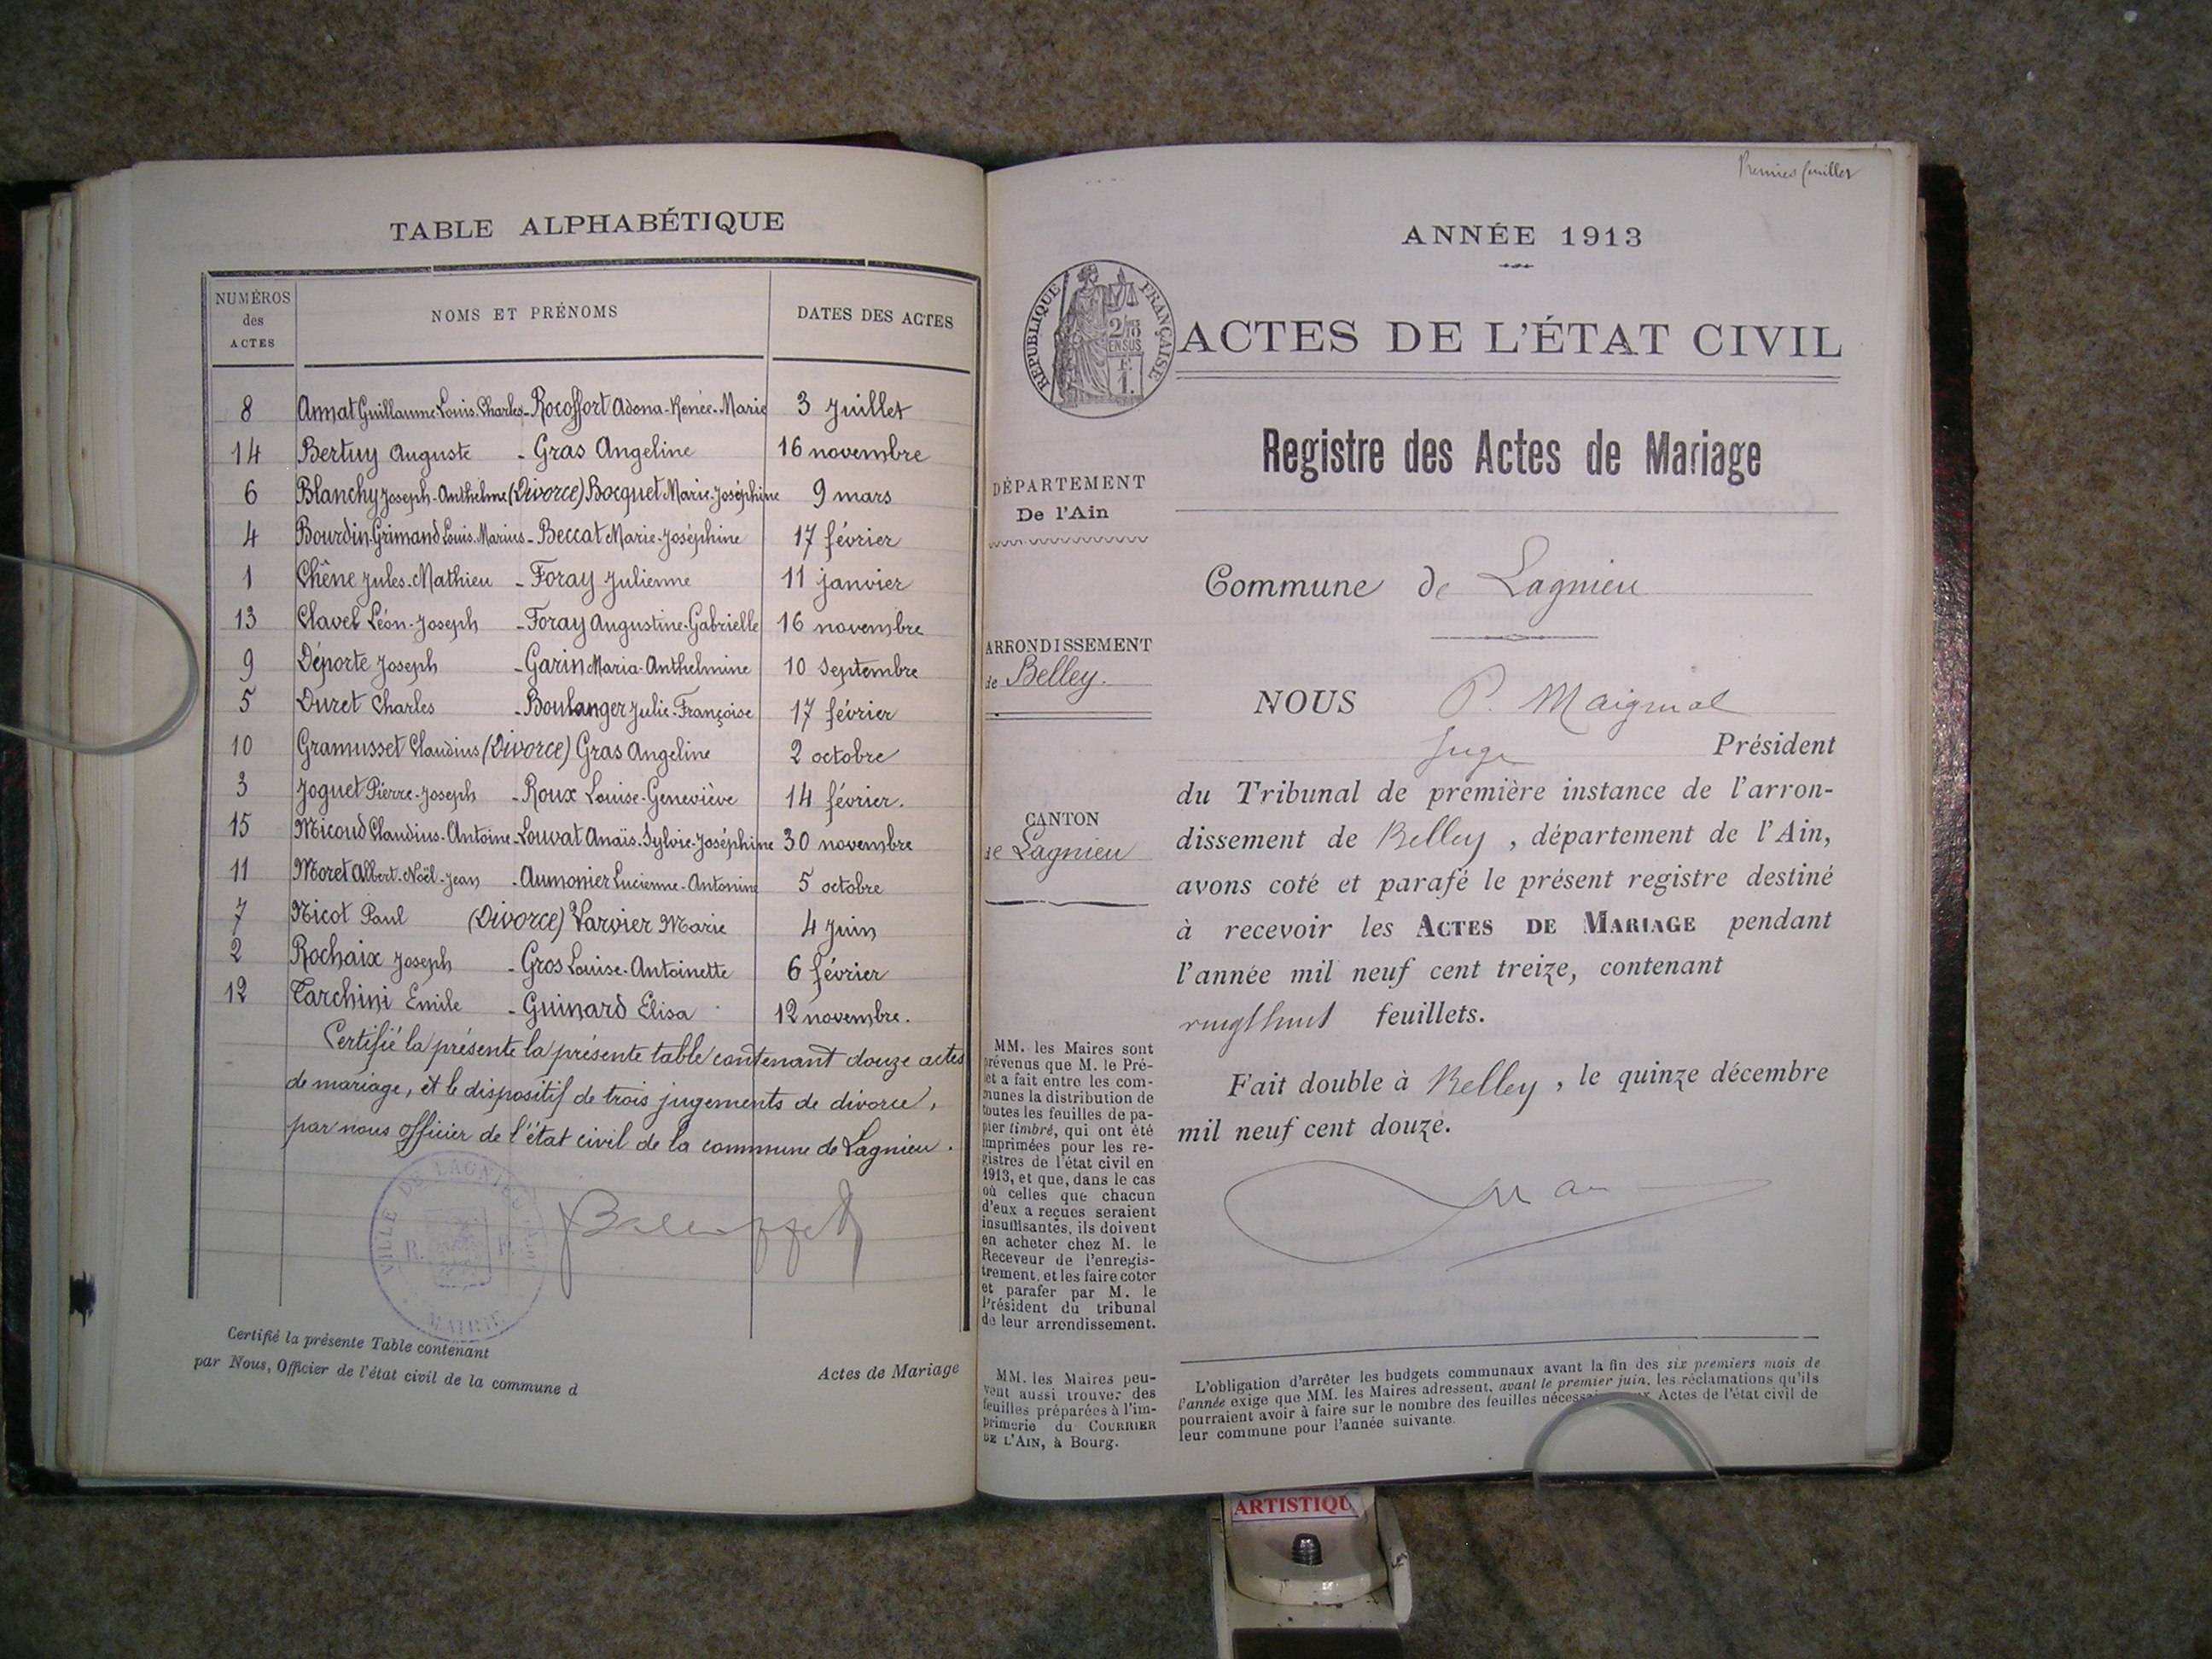 TABLE ALPHABÉTIQUE
NUMÉROS des ACTES NOMS ET PRÉNOMS DATES DES ACTES
8 Amat Guillaume Louis Charles - Rocoffort Adona-Renée-Marie 3 Juillet
14 Bertuy Auguste - Gras Angeline 16 novembre
6 Blanchy Joseph-Anthelme (Divorce) Bocquet Marie-Joséphine 9 mars
4 Bourdin-Grimand Louis-Marius - Beccat Marie-Joséphine 17 février
1 Chêne Jules-Mathieu - Foray Julienne 11 janvier
13 Clavel Léon-Joseph - Foray Augustine-Gabrielle 16 novembre
9 Déporte Joseph - Garin Maria-Anthelmine 10 septembre
5 Duret Charles - Boulanger Julie-Françoise 17 février
10 Gramusset Claudius (Divorce) Gras Angeline 2 octobre
3 Joguet Pierre-Joseph - Roux Louise-Geneviève 14 février.
15 Micoud Claudius-Antoine - Louvat Anaïs-Sylvie-Joséphine 30 novembre
11 Moret Albert-Noël-Jean - Aumonier Lucienne-Antonine 5 octobre
7 Nicot Paul (Divorce) Varvier Marie 4 Juin
2 Rochaix Joseph - Gros Louise-Antoinette 6 février
12 Tarchini Emile - Guinard Elisa 12 novembre.
Certifié la présente la présente table contenant douze actes
de mariage, et le dispositif de trois jugements de divorce,
par nous officier de l'état civil de la commune de Lagnieu.
VILLE DE LAGNIEU
R. F.
MAIRIE
Certifié la présente Table contenant Actes de Mariage
par Nous, Officier de l'état civil de la commune d
Premier feuillet
ANNÉE 1913
RÉPUBLIQUE FRANÇAISE
2/10 EN SUS
F.
1.
ACTES DE L'ÉTAT CIVIL
Registre des Actes de Mariage
DÉPARTEMENT
De l'Ain
Commune de Lagnieu
ARRONDISSEMENT
de Belley.
NOUS P. Maignial
Juge Président
du Tribunal de première instance de l'arron-
dissement de Belley, département de l'Ain,
avons coté et parafé le présent registre destiné
à recevoir les ACTES DE MARIAGE pendant
l'année mil neuf cent treize, contenant
vingt huit feuillets.
Fait double à Belley, le quinze décembre
mil neuf cent douze.
CANTON
de Lagnieu
MM. les Maires sont
prévenus que M. le Pré-
fet a fait entre les com-
munes la distribution de
toutes les feuilles de pa-
pier timbré, qui ont été
imprimées pour les re-
gistres de l'état civil en
1913, et que, dans le cas
où celles que chacun
d'eux a reçues seraient
insuffisantes, ils doivent
en acheter chez M. le
Receveur de l'enregis-
trement, et les faire coter
et parafer par M. le
Président du tribunal
de leur arrondissement.
MM. les Maires peu-
vent aussi trouver des
feuilles préparées à l'im-
primerie du COURRIER
DE L'AIN, à Bourg.
L'obligation d'arrêter les budgets communaux avant la fin des six premiers mois de
l'année exige que MM. les Maires adressent, avant le premier juin, les réclamations qu'ils
pourraient avoir à faire sur le nombre des feuilles Actes de l'état civil de
leur commune pour l'année suivante.
ARTISTIQU